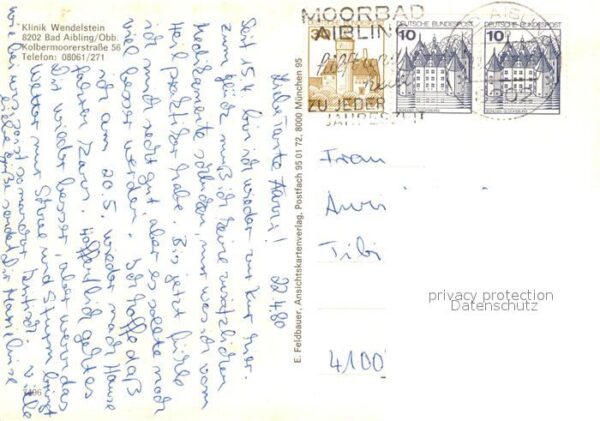 Klinik Wendelstein
8202 Bad Aibling/Obb.
Kolbermoorerstraße 56
Telefon: 08061/271
MOORBAD
AIBLING
ZU JEDER
JAHRESZEIT
30
10
DEUTSCHE BUNDESPOST
10
DEUTSCHE BUNDESPOST
22.4.80
Liebe Tante Anni!
Seit 15.4. bin ich wieder zur Kur hier.
zum Glück muß ich keine zusätzlichen
Medikamente schlucken, nur was ich vom
Heilpraktiker habe. Bis jetzt fühle
ich mich recht gut, aber es sollte noch
viel besser werden. Ich hoffe daß
ich am 20.5. wieder nach Hause
fahren kann. Hoffentlich geht es
Dir wieder besser, aber wenn das
Wetter nur Schnee und Sturm bringt
viele Grüße sendet Dir Hannelore
E. Feldbauer, Ansichtskartenverlag, Postfach 95 01 72, 8000 München 95
Frau
Anni
Tibi
4100
privacy protection
Datenschutz
7406